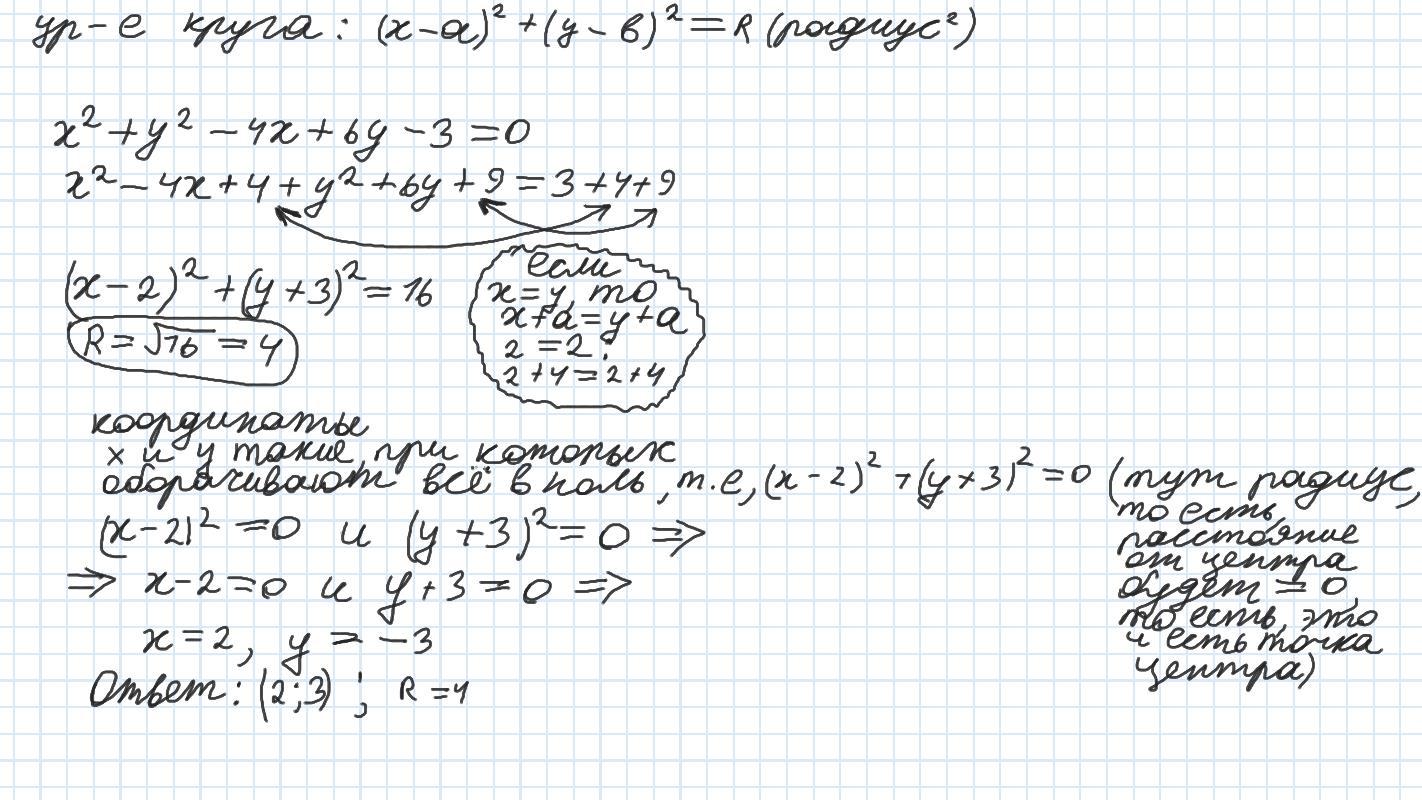 ур-е круга: (x-a)² + (y-в)² = R (радиус²)
x² + y² - 4x + 6y - 3 = 0
x² - 4x + 4 + y² + 6y + 9 = 3 + 4 + 9
(x-2)² + (y+3)² = 16
R = √16 = 4
если
x = y, то
x + a = y + a
2 = 2;
2 + 4 = 2 + 4
координаты
x и y такие, при которых
оборачивают всё в ноль, т.е, (x-2)² + (y+3)² = 0 (тут радиус,
то есть,
расстояние
от центра
будет = 0,
то есть, это
и есть точка
центра)
(x-2)² = 0 и (y+3)² = 0 ⇒
⇒ x-2 = 0 и y+3 = 0 ⇒
x = 2, y = -3
Ответ: (2;3) ; R = 4